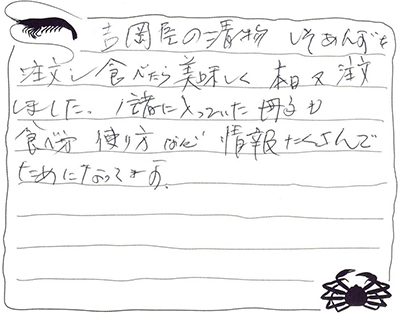 吉岡屋の漬物 しそあんずを
注文し食べたら美味しく 本日又注文
しました。一緒に入っていた冊子も
食べ方 使い方など 情報たくさんで
ためになってます。